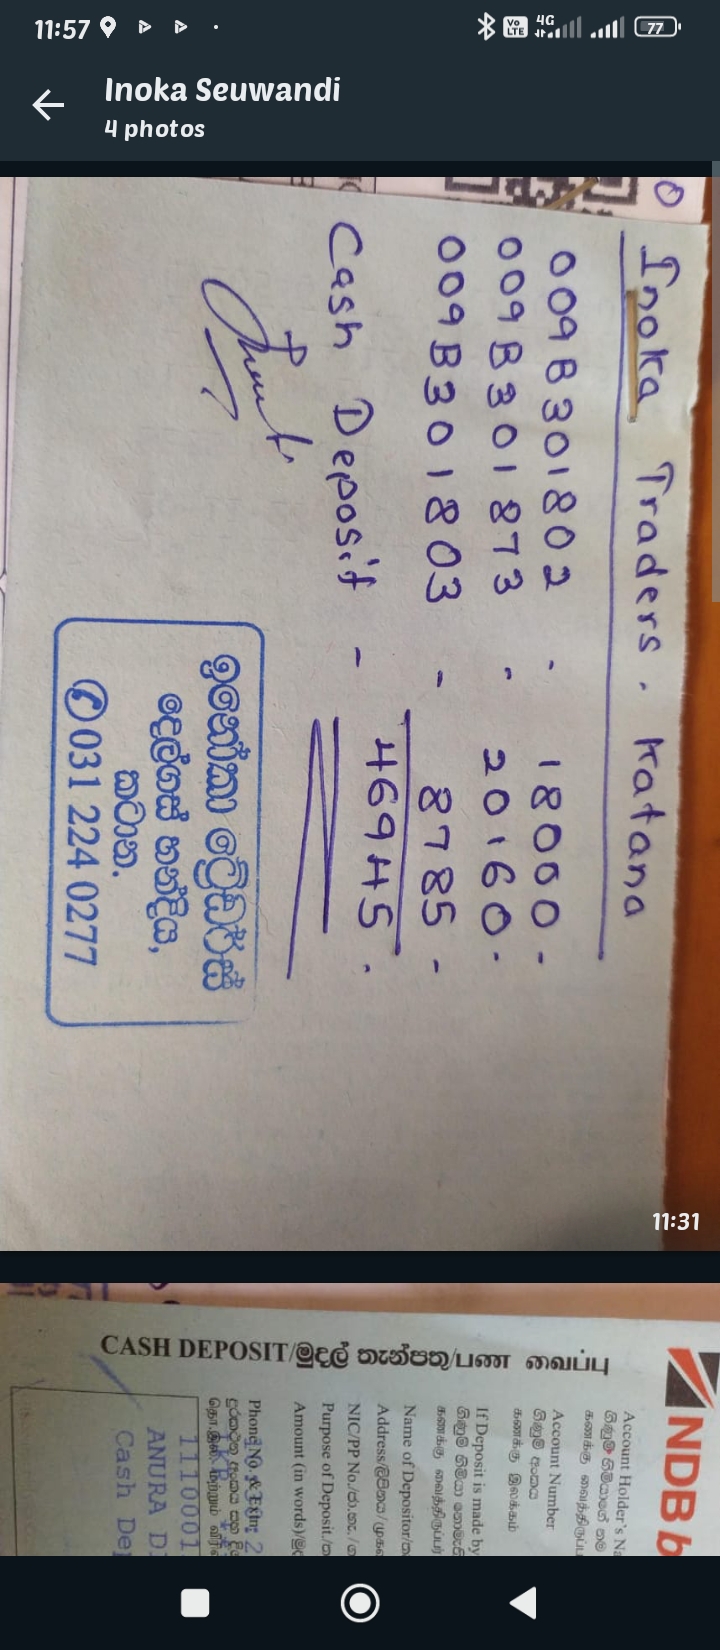 11:57
Vo LTE
4G
77
Inoka Seuwandi
4 photos
Inoka Traders. Katana
009B301802 - 18000 -
009B301873 - 20160 -
009B301803 - 8785 -
Cash Deposit - 46945.
ඉනෝකා ට්‍රේඩර්ස්
දෙල්ගස් හන්දිය,
කටාන.
031 224 0277
11:31
NDB b
CASH DEPOSIT/මුදල් තැන්පතු/பண வைப்பு
Account Holder's Na
ගිණුම් හිමියාගේ නම
கணக்கு வைத்திருப்ப
Account Number
ගිණුම් අංකය
கணக்கு இலக்கம்
If Deposit is made by
ගිණුම් හිමියා
கணக்கு வைத்திருப்பர்
Name of Depositor/
Address/ලිපිනය/முக
NIC/PP No./
Purpose of Deposit
Amount (in words)/
Phone No
1110001
ANURA D
Cash De